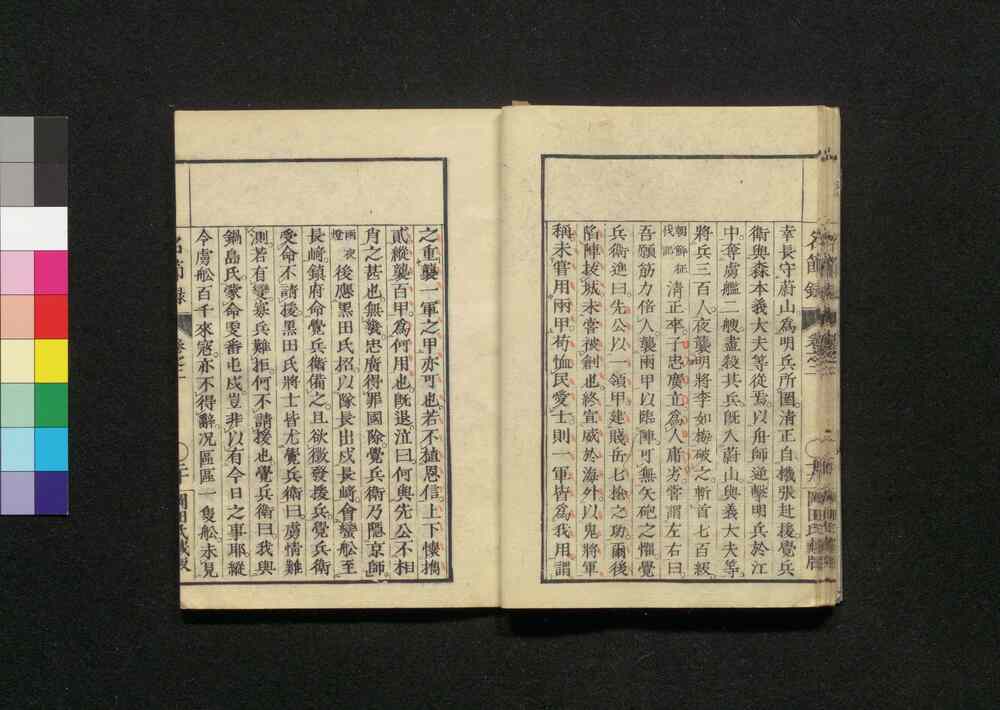 幸長守蔚山爲明兵所圍清正自機張赴援覺兵
衛與森本義大夫等從焉以舟師逆擊明兵於江
中奪虜艦二艘盡殺其兵旣入蔚山與義大夫等
將兵三百人夜襲明將李如梅破之斬首七百級
朝鮮征
伐記
清正卒子忠廣立爲人庸劣嘗謂左右曰
吾願筋力倍人襲兩甲以臨陣可無矢砲之懼覺
兵衛進曰先公以一領甲建賤岳七搶之功爾後
陷陣拔城未嘗被創也終宣威於海外以鬼將軍
稱未嘗用兩甲苟恤民愛士則一軍皆爲我用謂
之重襲一軍之甲亦可也若不植恩信上下懷攜
貳縱襲百甲爲何用也旣退泣曰何與先公不相
肖之甚也無幾忠廣得罪國除覺兵衛乃隱京師
雨夜
燈
後應黑田氏招以隊長出戍長崎會蠻舩至
長崎鎮府命覺兵衛備之且欲徵發援兵覺兵衛
受命不請援黑田氏將士皆尤覺兵衛曰虜情難
測若有變寡兵難拒何不請援也覺兵衛曰我與
鍋島氏蒙命更番屯戍豈非以有今日之事耶縱
令虜舩百千來寇亦不得辭况區區一隻舩未見
名節錄
卷之二